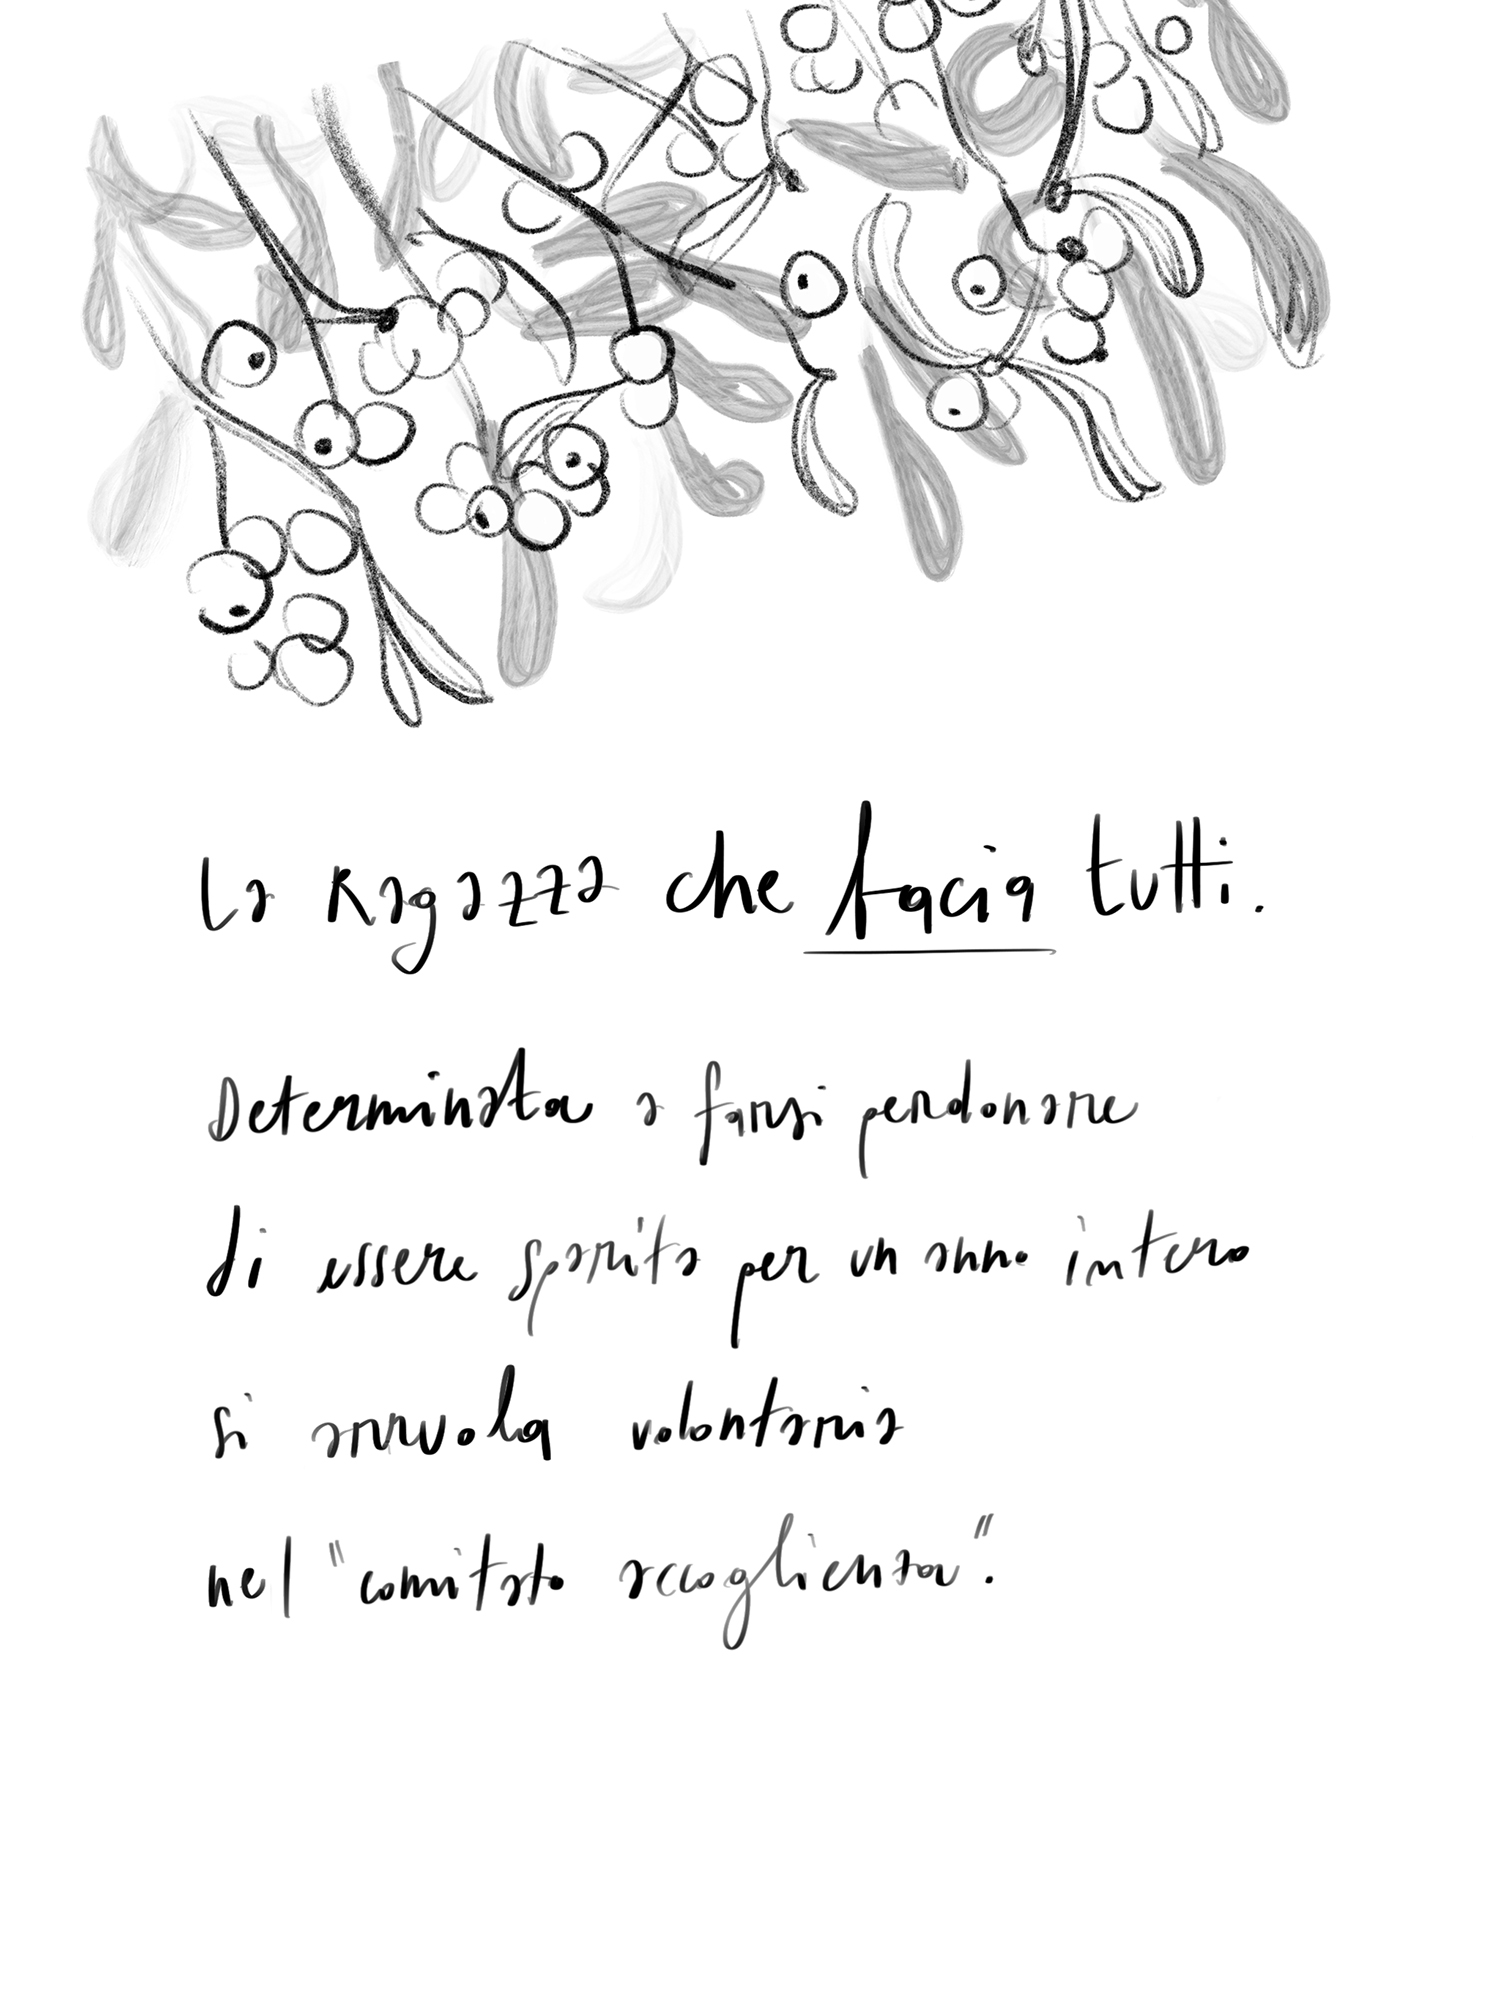 La Ragazza che bacia tutti.
Determinata a farsi perdonare
di essere sparita per un anno intero
si arruola volontaria
nel "comitato accoglienza".